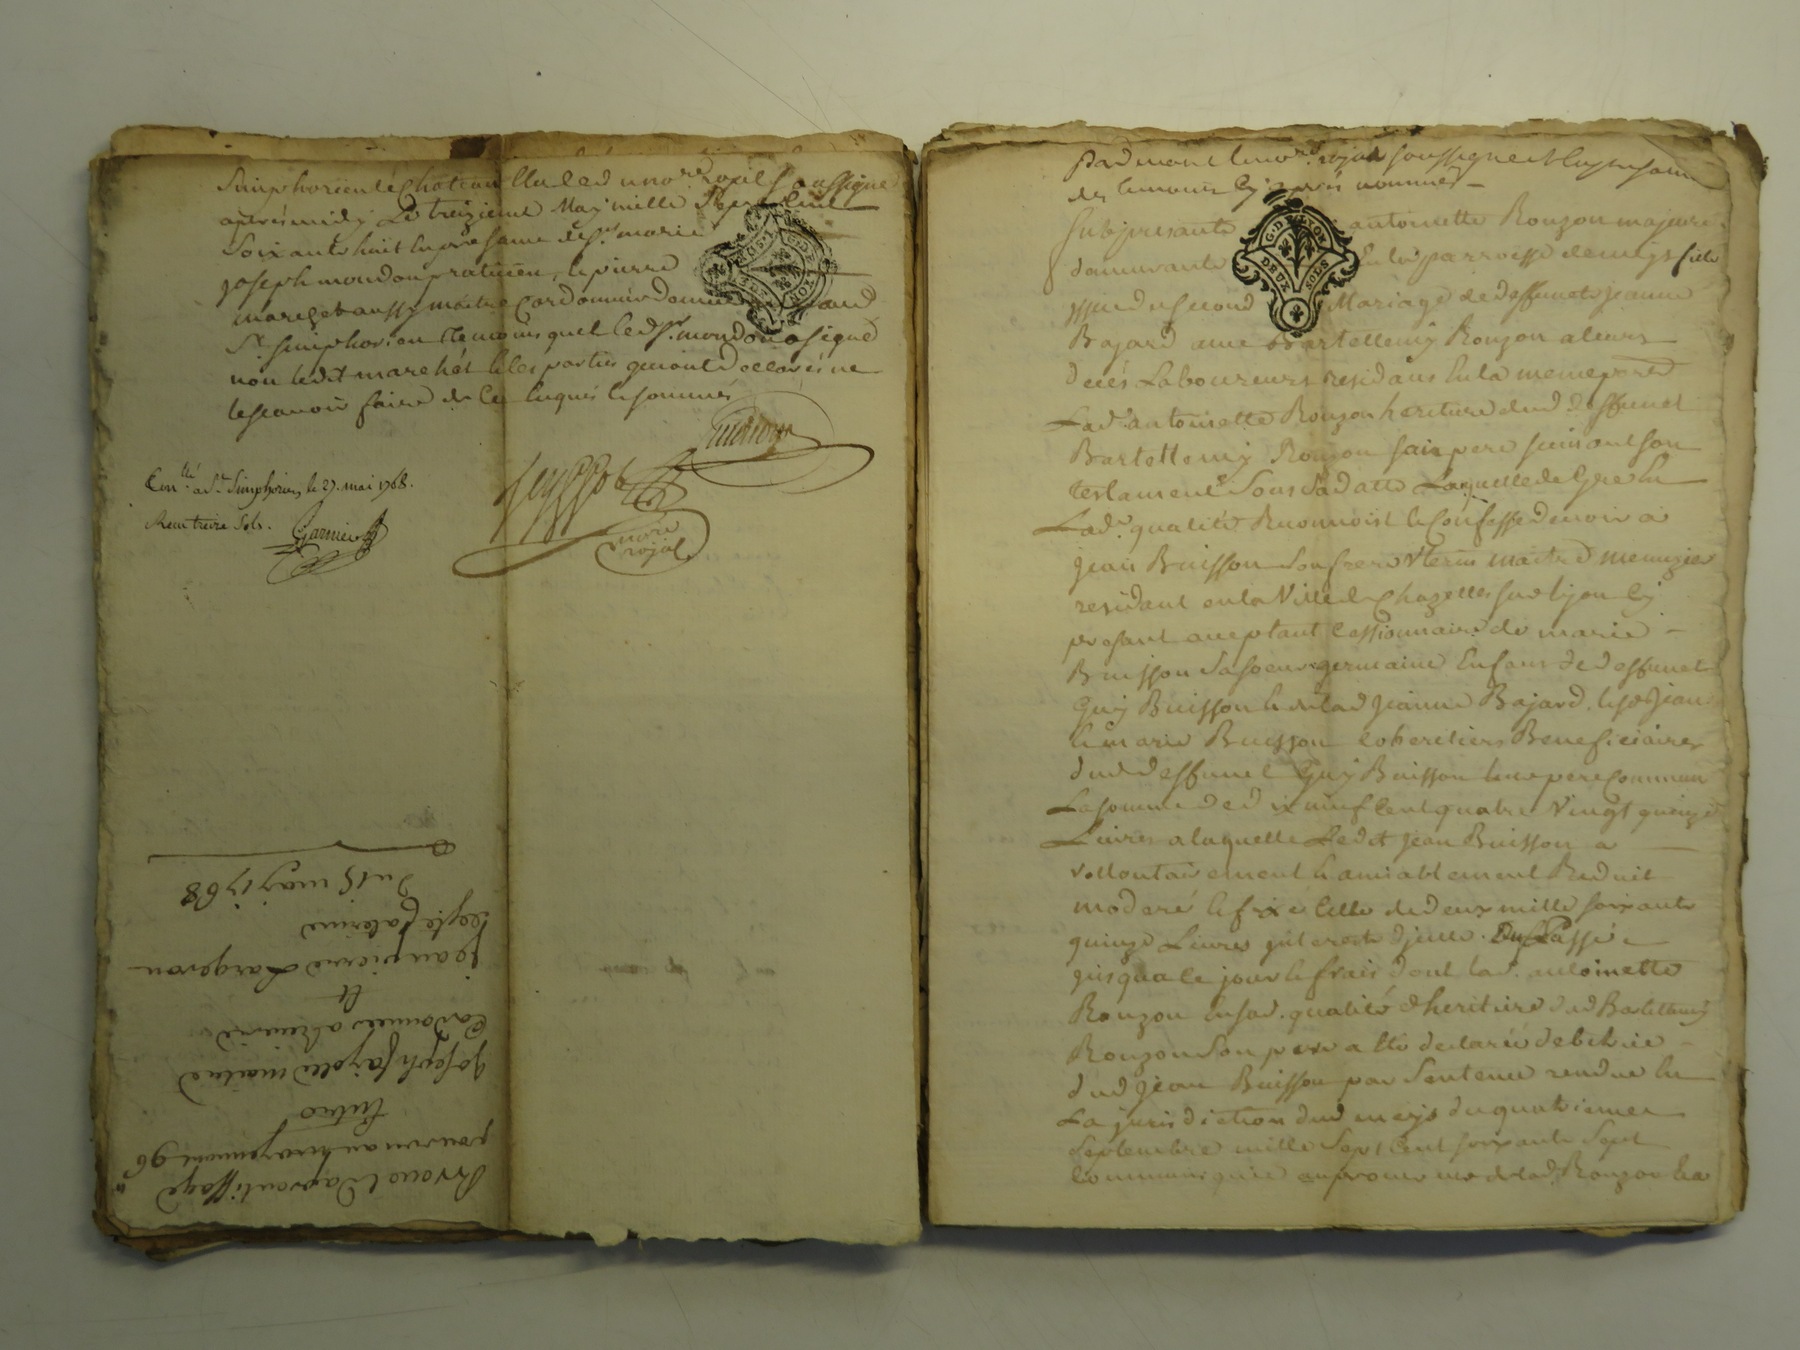 Simphorien le Chateau Etude du no.re royal soussigne
apres midy Le treizieme May mille Sept Cent
Soixante huit En presence de Sr. marie
joseph moudon praticien, et pierre
marchet aussy maitre Cordonnier demt.
St. Simphorion temoins quel led. Sr. moudon a signé
non ledit marchét et les parties qui ont declarés ne
le scavoir faire de ce Enquis et sommés
Moudon
Con.lé a St. Simphorien, le 27. mai 1768.
Reçu treize sols.
Garnier
no.re royal
Brevet d'aprentissage
pour un an moyennant 96#
Entre
Joseph fayolle maitre
Cordonnier a
Et
jean pierre Largeron
Du 15 may 1768
Pardevant le no.re royal soussigne et En presence
des temoins Cy apres nommés
G.D.LYON
DEUX SOLS
fut presente antoinette Rouzon majeure
demeurante En la parroisse de meys fille
issue du second Mariage de deffunets jeanne
Bajard avec Bartellemy Rouzon a leurs
deces Laboureurs residans En la meme par.
Lad. antoinette Rouzon heritiere dud. deffunet
Bartellemy Rouzon son pere suivant son
testament sous sa datte Laquelle de gré En
Lad. qualité Reconnoist et Confesse devoir a
jean Buisson son frere Uterin maitre menuzier
residant en la Ville de Chazelles sur lyon Cy
present acceptant Cessionnaire de marie
Buisson sa soeur germaine Enfans de deffunets
Guy Buisson et de lad. jeanne Bajard, lesd. jean
et marie Buisson coheritiers Beneficiaires
dud. deffunet Guy Buisson leur pere Commun
La somme de dix neuf Cent quatre Vingt quinze
Livres a laquelle Ledit jean Buisson a
vollontairement et amiablement Reduit
moderé et fixé Celle de deux mille soixante
quinze Livres
jusqua ce jour et frais dont lad. antoinette
Rouzon En sad. qualité d'heritiere dud. Bartellemy
Rouzon son pere a eté declarée debitrice
dud. jean Buisson par Sentence rendue En
La jurisdiction dud. meys du quatrieme
Septembre mille Sept Cent soixante Sept
Communiquée au procureur de lad. Rouzon Le